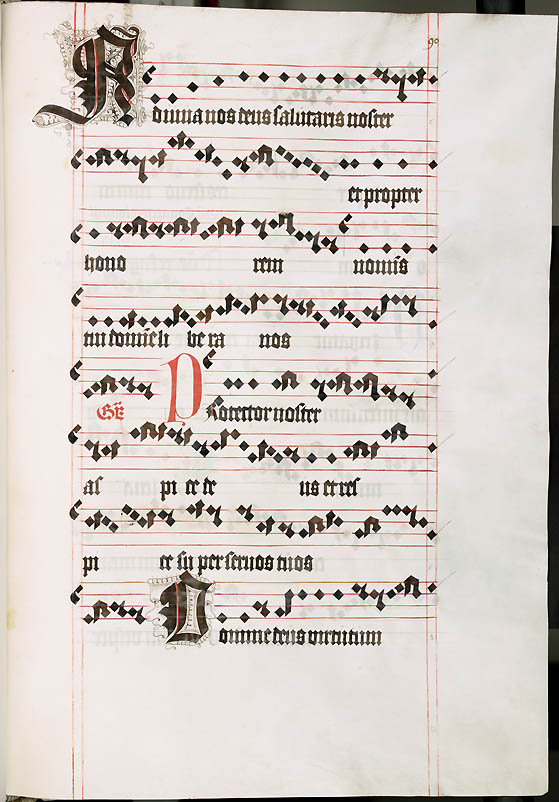 90
Adiuua nos deus salutaris noster
et propter
hono rem nomis
tui domie li be ra nos
Gr̄ Protector noster
as pi ce de us et res
pi ce su per seruos tuos
Domine deus virtutum